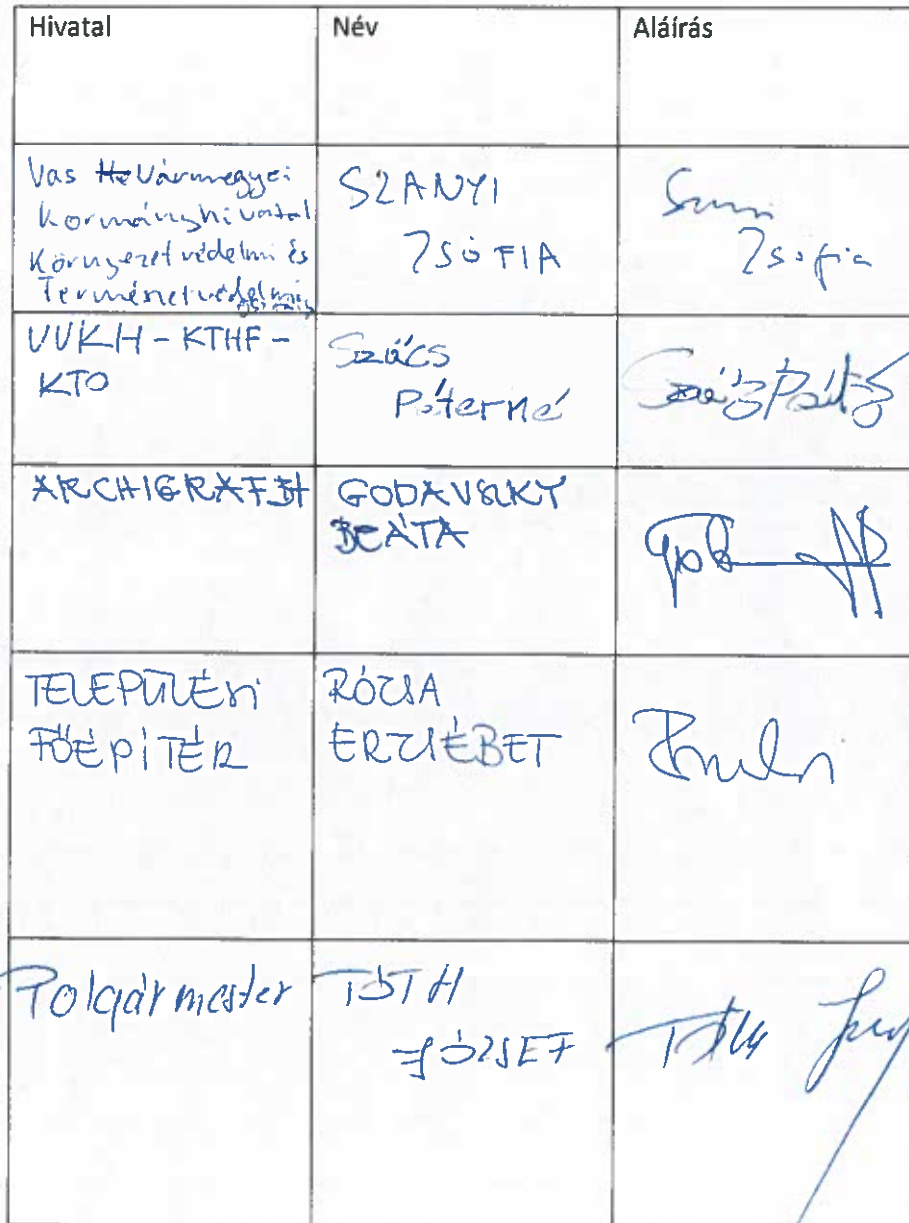 Hivatal Név Aláírás
Vas Vármegyei
Kormányhivatal
Környezetvédelmi és
Természetvédelmi
SZANYI
ZSÓFIA
Zsófia
VVKH - KTHF -
KTO
Szűcs
Péterné
ARCHIGRAF BT
GODAVSZKY
BEÁTA
TELEPÜLÉSI
FŐÉPÍTÉSZ
RÓZSA
ERZSÉBET
Polgármester
TÓTH
JÓZSEF
Tóth